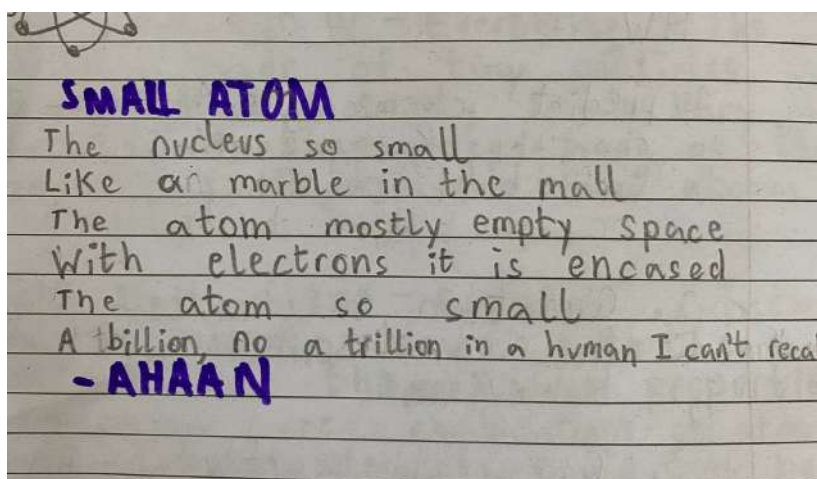 SMALL ATOM
The nucleus so small
Like a marble in the mall
The atom mostly empty space
With electrons it is encased
The atom so small
A billion, no a trillion in a human I can't reca
- AHAAN